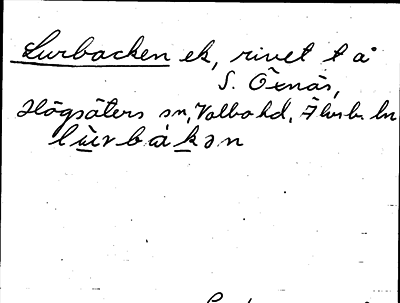 Lurbacken ek, rivet t å
S. Öxnäs,
Högsäters sn, Valbo hd, Älvsb. ln
lùrbàkən